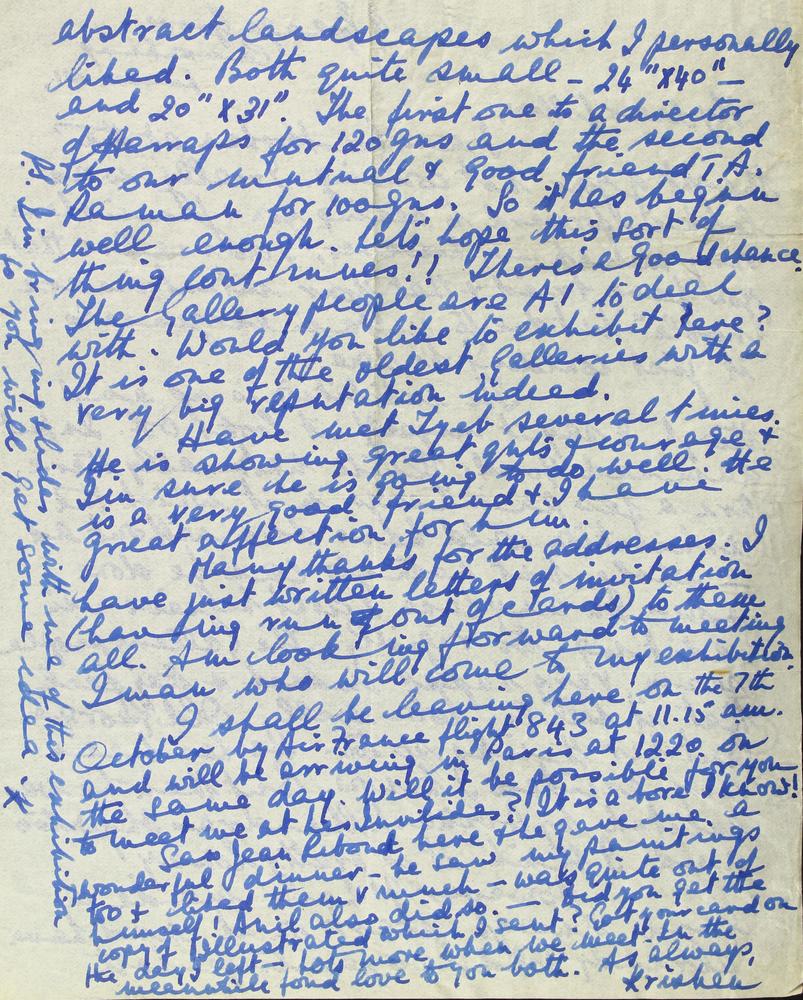 abstract landscapes which I personally
liked. Both quite small – 24"x40" –
and 20"x31". The first one to a director
of Harraps for 120 gns and the second
to our mutual & good friend T.A.
Raman for 100 gns. So it has begun
well enough. Let's hope this sort of
thing continues!! There's a good chance.
The Gallery people are A1 to deal
with. Would you like to exhibit here?
It is one of the oldest Galleries with a
very big reputation indeed.
Have met Tyeb several times.
He is showing great guts & courage &
I'm sure he is going to do well. He
is a very good friend & I have
great affection for him.
Many thanks for the addresses. I
have just written letters of invitation
(having run out of cards) to them
all. Am looking forward to meeting
Iman who will come to my exhibition.
I shall be leaving here on the 7th
October by Air France flight 843 at 11.15 am.
and will be arriving in Paris at 1220 on
the same day. Will it be possible for you
to meet me at Les Invalides? It is a bore I know!
Saw Jean Riboud here & he gave me a
wonderful dinner – he saw my paintings
too & liked them v much – was quite out of
himself! Anil also did so. – Did you get the
copy of illustrated which I sent? Got your card on
the day I left – Lots more when we meet. In the
meanwhile fond love to you both. As always,
Krishen
PS. I'm bringing slides with me of this exhibition
so you will get some idea. x